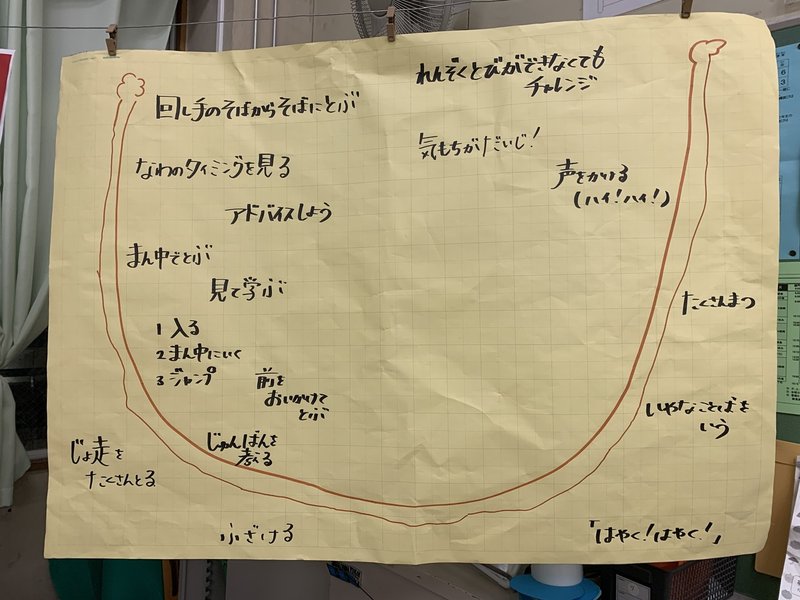 れんぞくとびができなくても
チャレンジ
回し手のそばからそばにとぶ
気もちがだいじ!
なわのタイミングを見る
声をかける
(ハイ!ハイ!)
アドバイスしよう
まん中でとぶ
見て学ぶ
たくさんまつ
1 入る
2 まん中にいく
3 ジャンプ
前を
おいかけて
とぶ
いやなことばを
いう
じゅんばんを
考える
じょ走を
たくさんとる
ふざける
「はやく!はやく!」